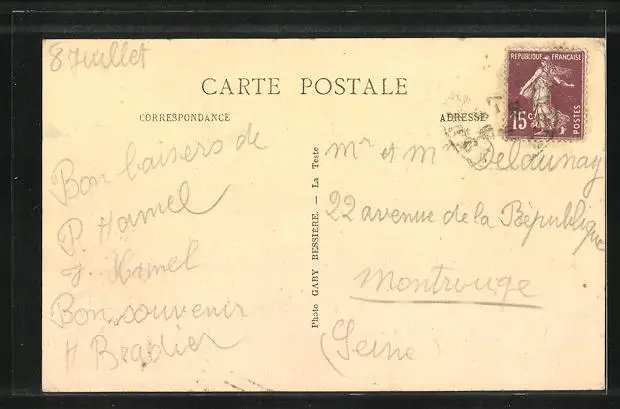 8 Juillet
CARTE POSTALE
CORRESPONDANCE
ADRESSE
REPUBLIQUE FRANÇAISE
15c
POSTES
Bon baisers de
P. Hamel
J. Hamel
Bon souvenir
H Bradier
Photo GABY BESSIÈRE. — La Teste
Mr et M Delaunay
22 avenue de la République
Montrouge
(Seine)